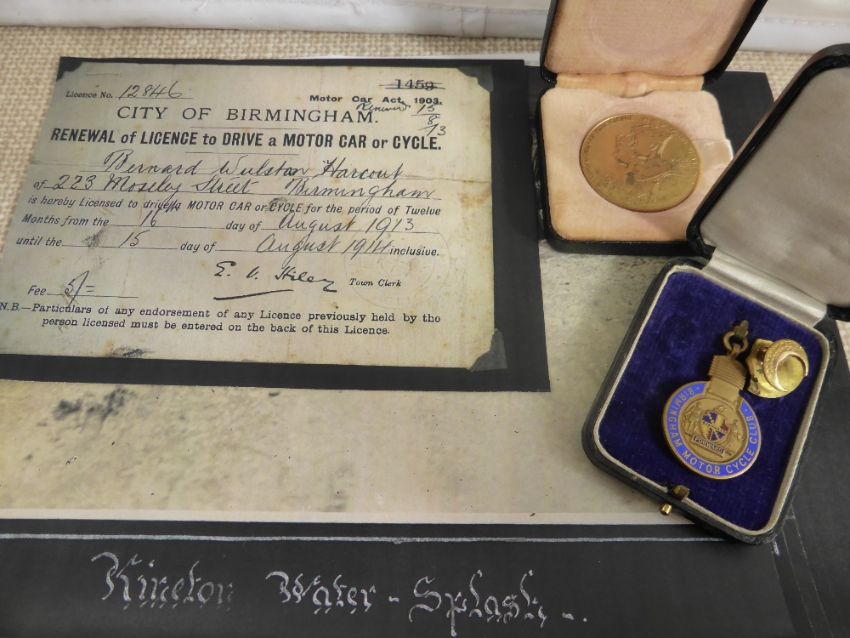 1459
Licence No. 12846
Motor Car Act, 1903.
Renewed 15/8/13
CITY OF BIRMINGHAM.
RENEWAL of LICENCE to DRIVE a MOTOR CAR or CYCLE.
Bernard Wulstan Harcourt
of 223 Moseley Street Birmingham
is hereby Licensed to drive a MOTOR CAR or CYCLE for the period of Twelve
Months from the 16th day of August 1913
until the 15 day of August 1914 inclusive.
Town Clerk
Fee 5/=
N.B.—Particulars of any endorsement of any Licence previously held by the
person licensed must be entered on the back of this Licence.
BIRMINGHAM MOTOR CYCLE CLUB
FORWARD
Kineton Water-Splash